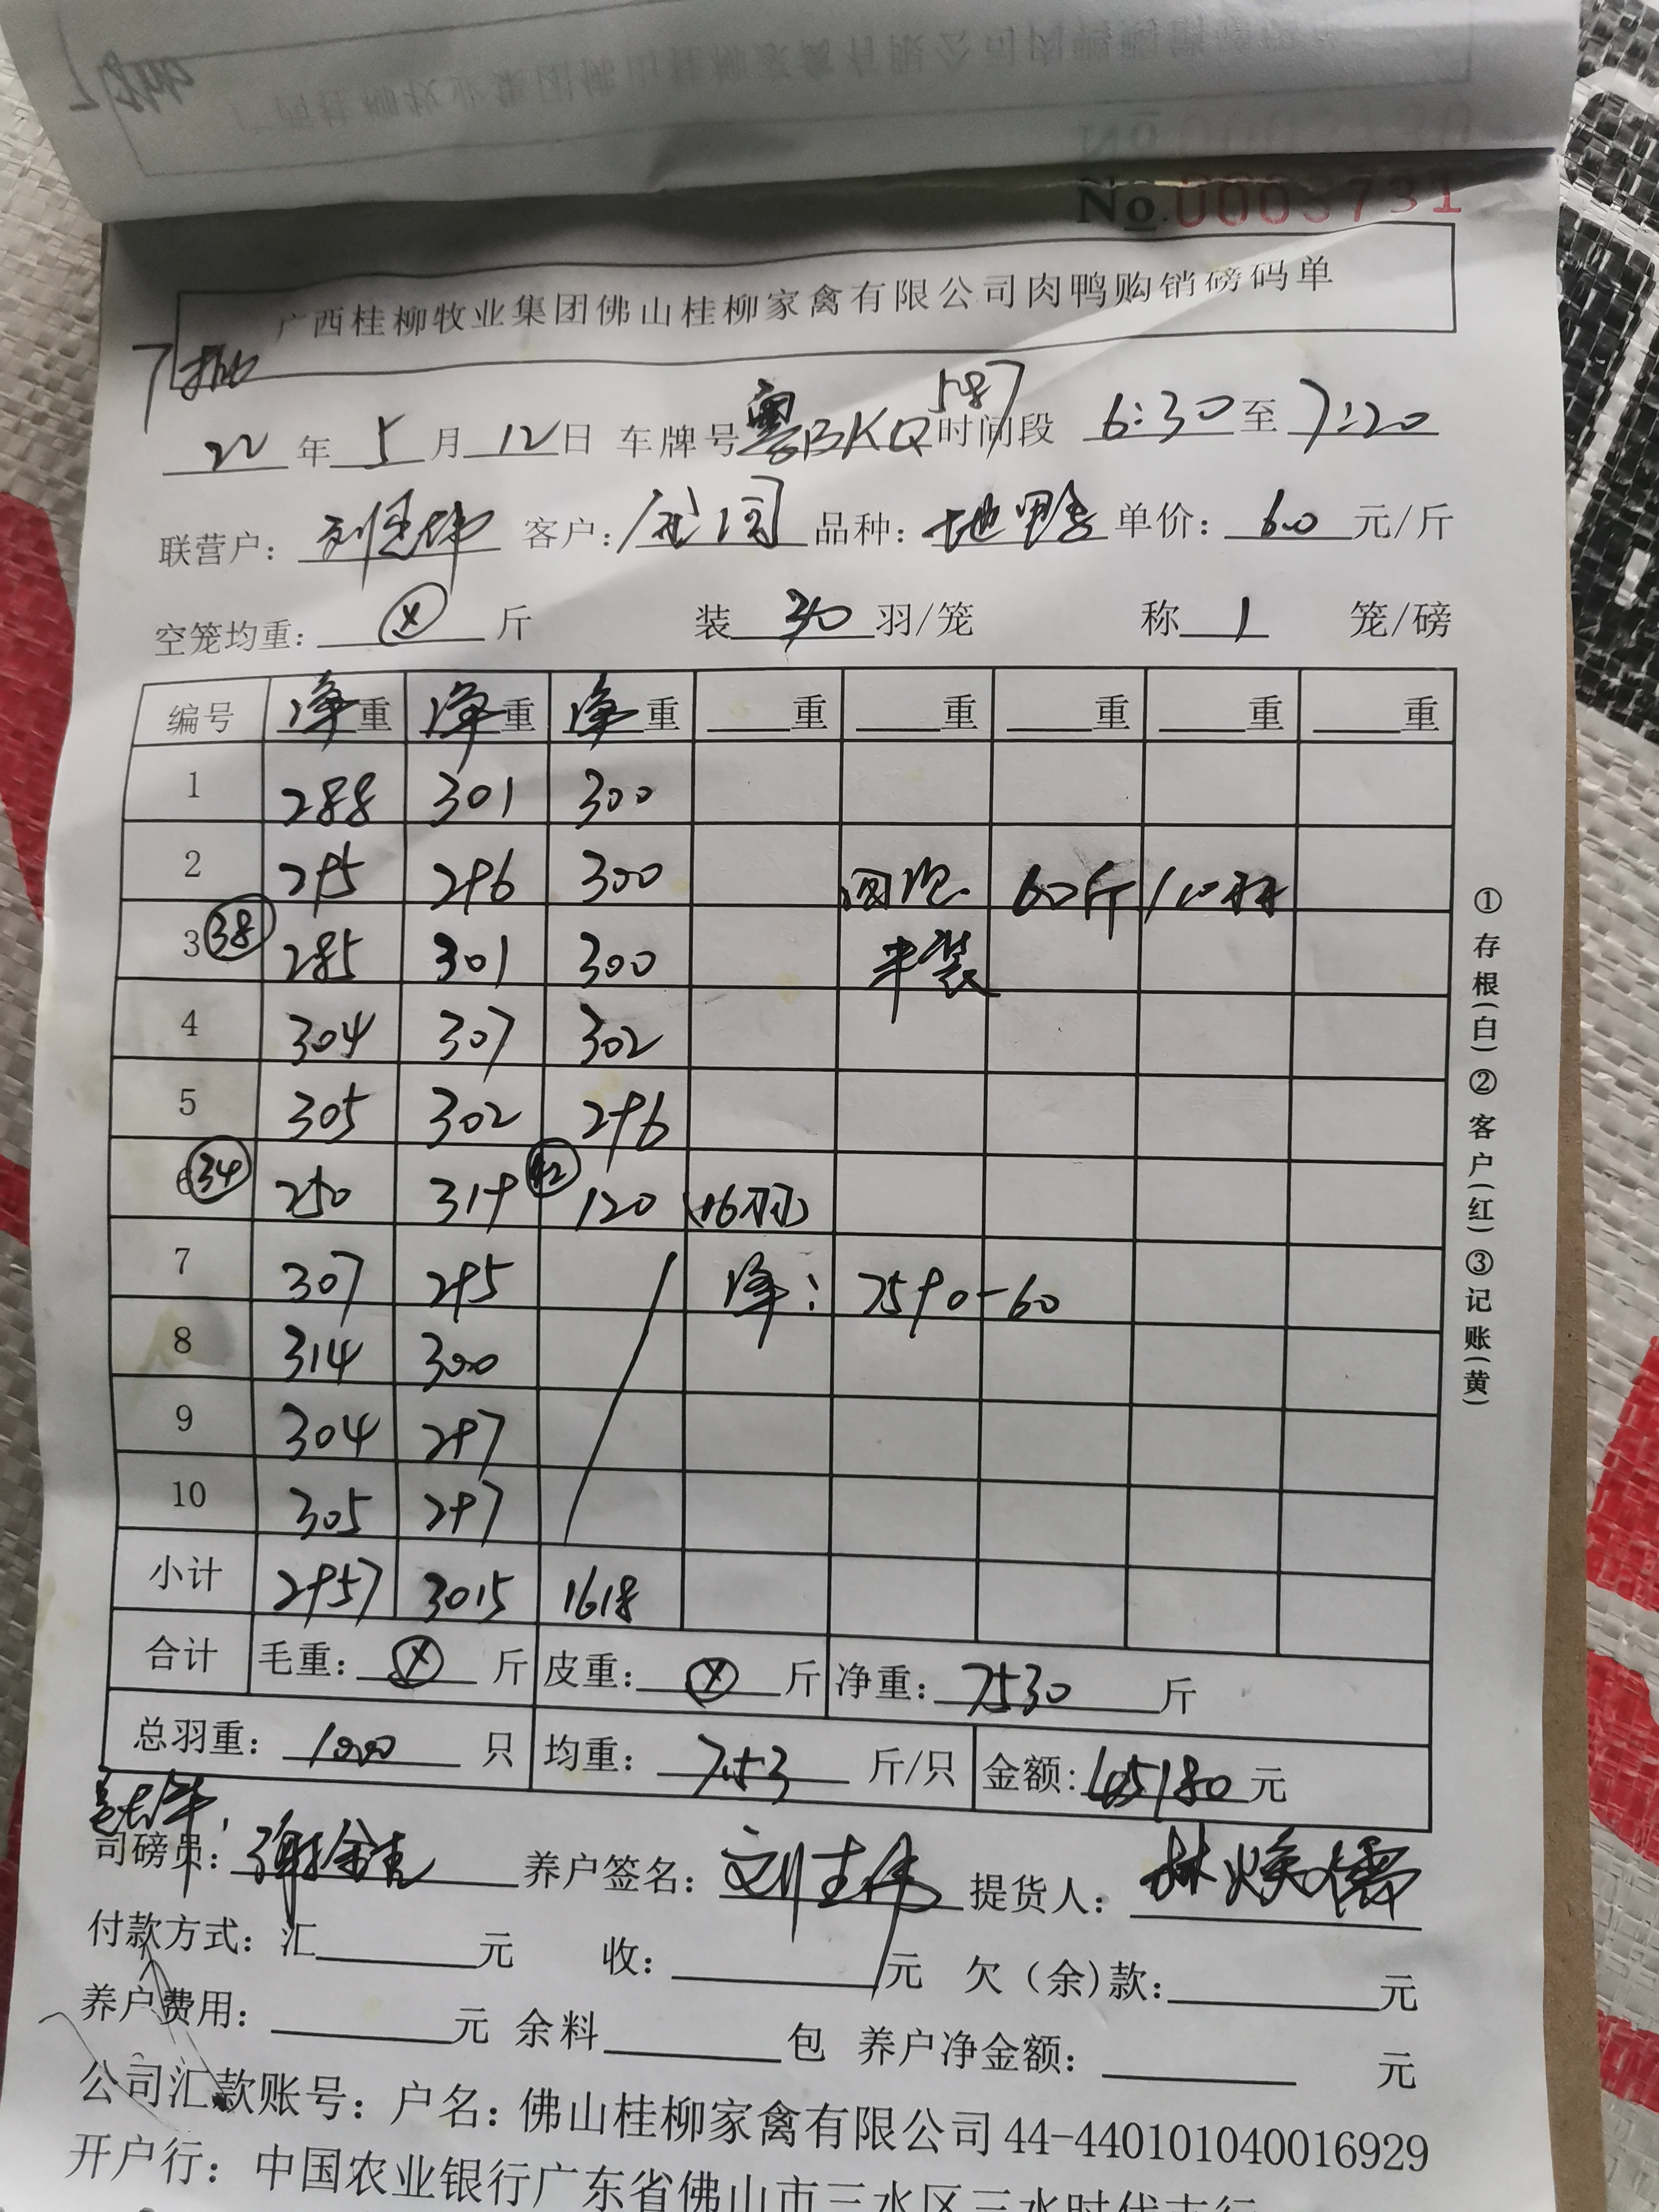 No.0003731
广西桂柳牧业集团佛山桂柳家禽有限公司肉鸭购销磅码单
22年5月12日 车牌号粤BKQ587 时间段 6:30至7:20
联营户: 客户: 品种: 地鸭 单价: 6.0 元/斤
空笼均重: ⊗ 斤 装 30 羽/笼 称 1 笼/磅
编号 净重 净重 净重 重 重 重 重 重
1 288 301 300
2 295 296 300 60斤/10羽
3 ㊳ 285 301 300 半装
4 304 307 302
5 305 302 296
6 ㉞ 250 319 ㊷ 120 (16羽)
7 307 295 净: 7590-60
8 314 300
9 304 297
10 305 297
小计 2957 3015 1618
合计 毛重: ⊗ 斤 皮重: ⊗ 斤 净重: 7530 斤
总羽重: 1000 只 均重: 7.53 斤/只 金额: 45180 元
司磅员: 养户签名: 提货人: 林焕儒
付款方式: 汇 元 收: 元 欠(余)款: 元
养户费用: 元 余料 包 养户净金额: 元
公司汇款账号: 户名: 佛山桂柳家禽有限公司 44-440101040016929
开户行: 中国农业银行广东省佛山市三水区三水时代支行
①存根(白)②客户(红)③记账(黄)